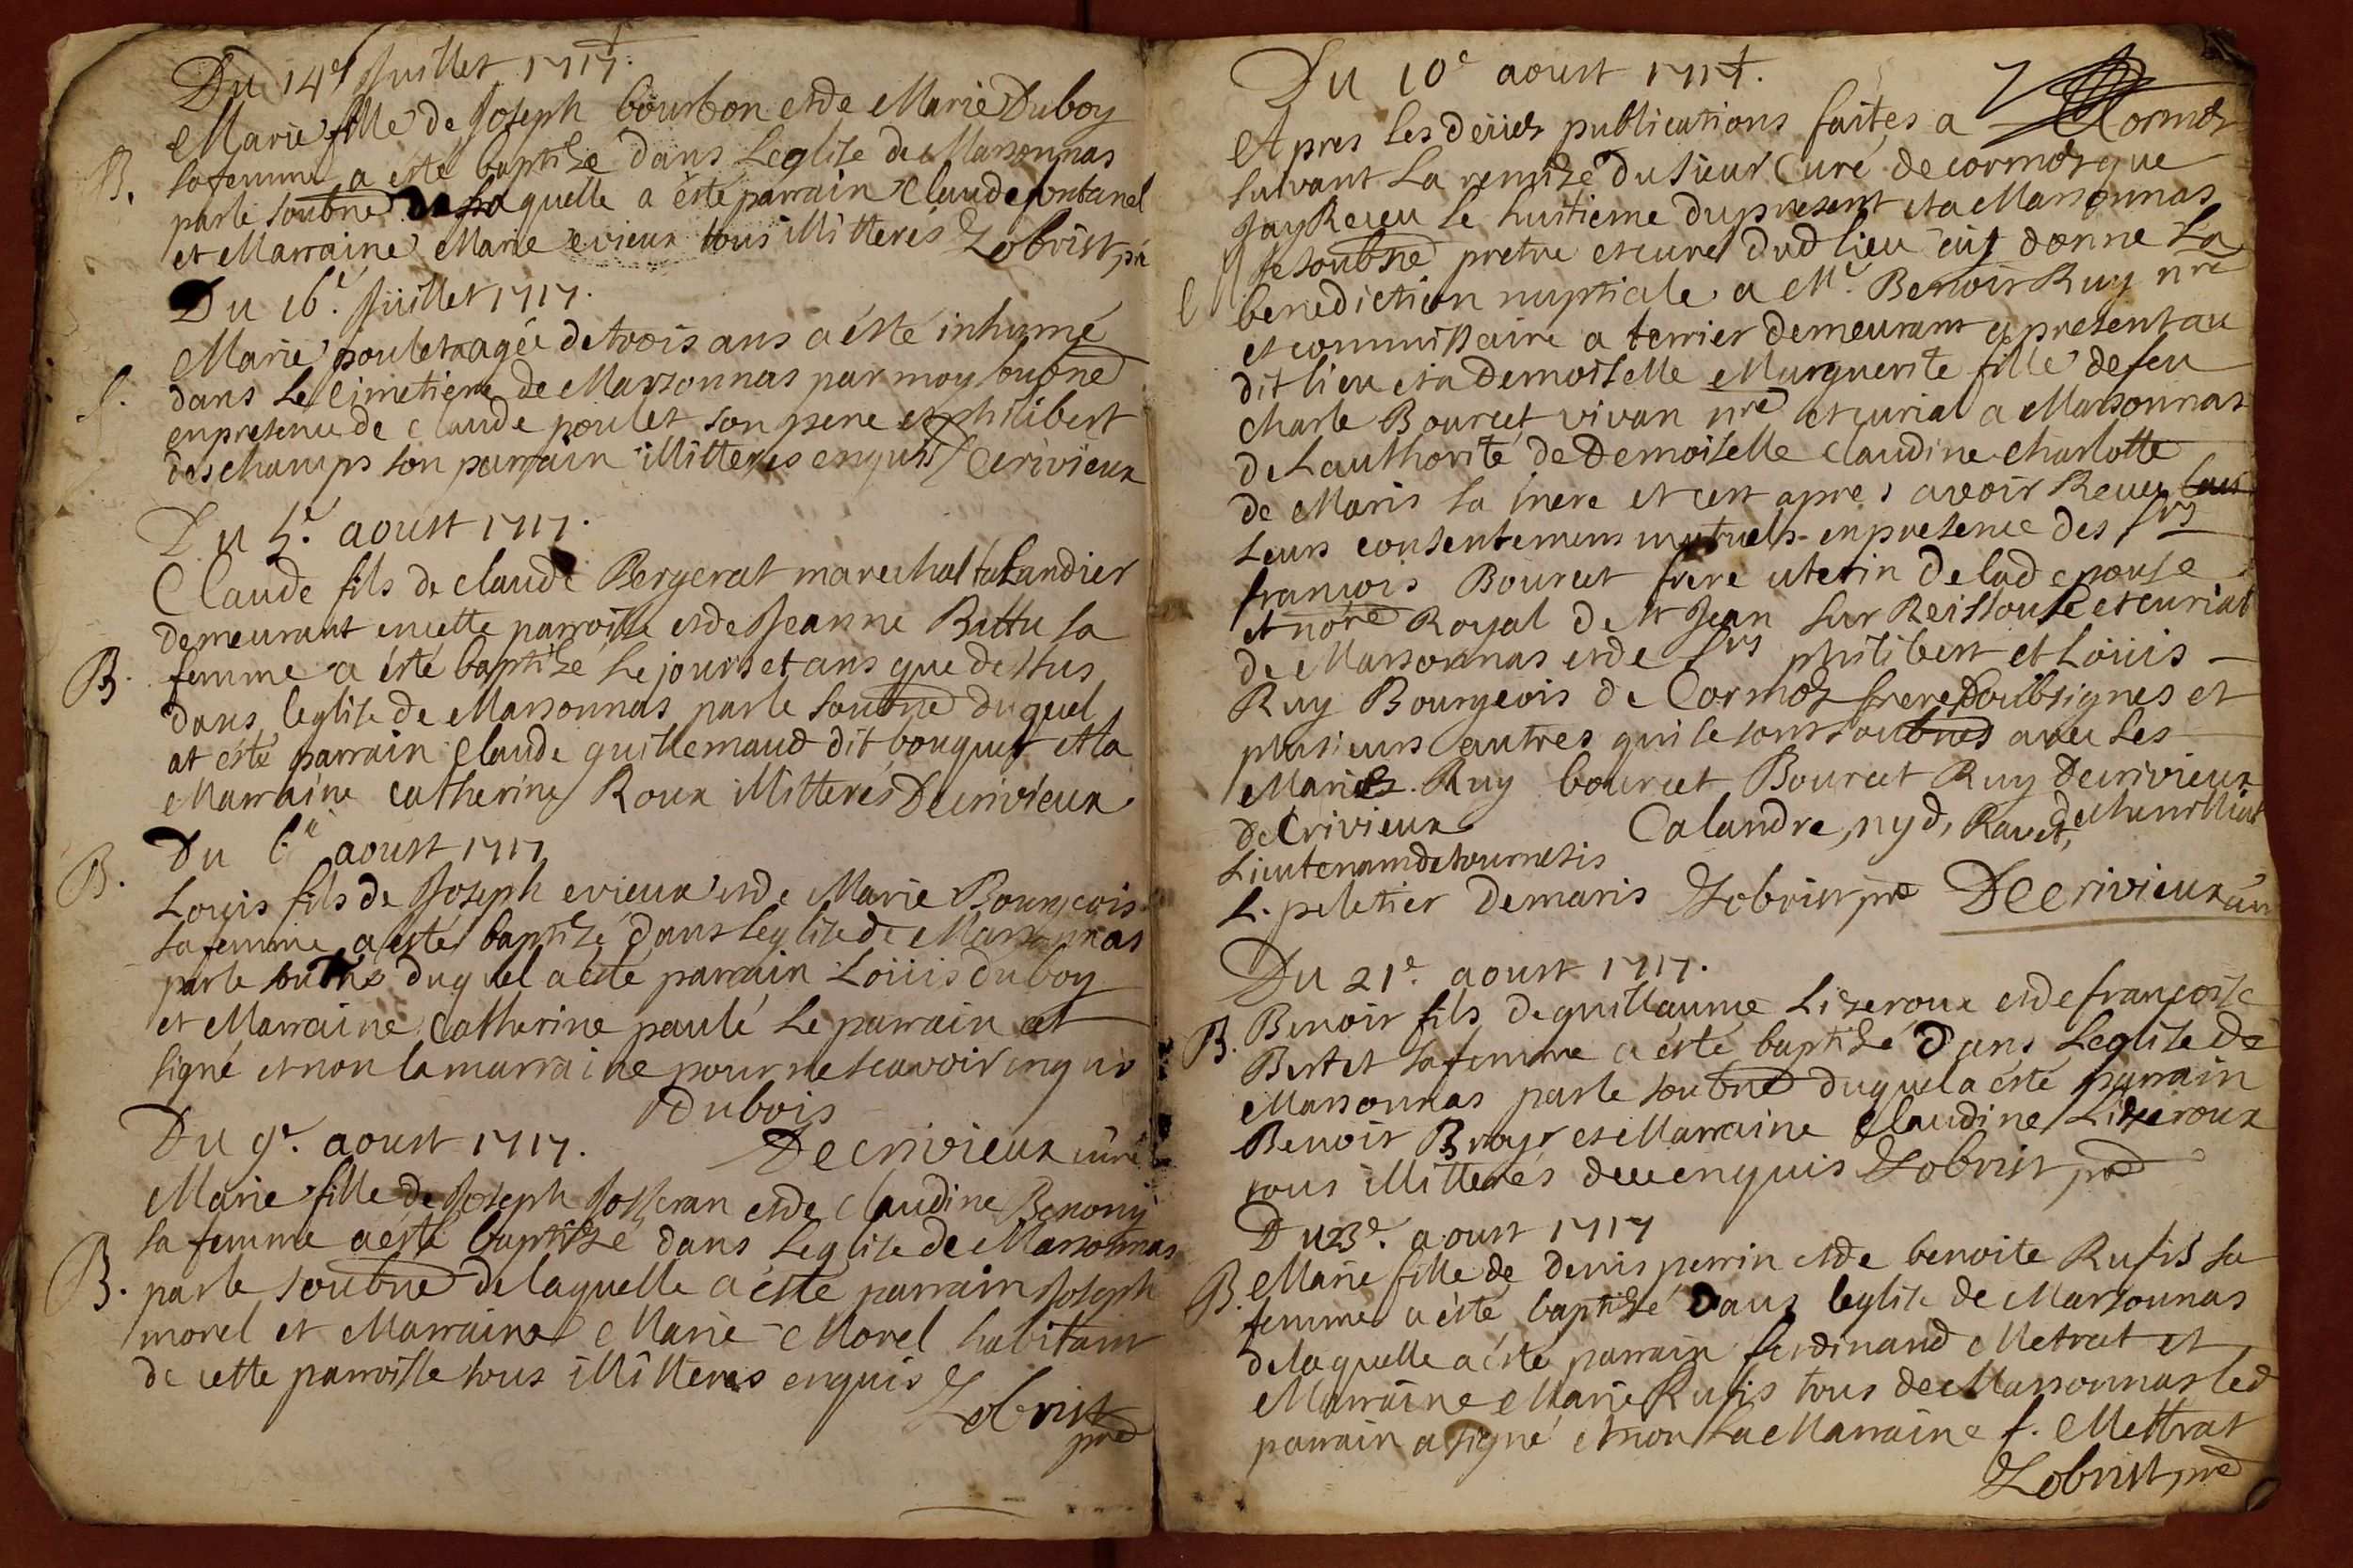 Du 14e Juillet 1717.
Marie fille de Joseph bourbon et de Marie Duboy
B. sa femme a esté baptisé dans Leglise de Marsonnas
par le soubné de laquelle a esté parrain Claude fontanel
et Marraine Marie evieux tous illitterés Lobrist pr
Du 16e. Juillet 1717.
Marie poulet agée de trois ans a ésté inhumé
S. dans Le Cimetiere de Marsonnas par moy soubné
en presence de claude poulet son pere et philibert
deschamps son parrain illitterés enquis Decrivieux
Du 5e. aoust 1717.
Claude fils de claude Bergerat marechal taLandier
demeurant en cette parroisse et de Jeanne Battu sa
B. femme a ésté baptisé Le jours et ans que dessus
dans leglise de Marsonnas par le soubné duquel
at esté parrain Claude guillemaud dit bouquet et la
Marraine catherine Roux illitterés Decrivieux
Du 6e aoust 1717
B. Louis fils de Joseph evieux et de Marie Bourgeois
sa femme a esté baptisé dans leglise de Marsonnas
par le soubné duquel a esté parrain Loüis duboy
et Marraine Catherine paulé Le parrain at
signé et non la marraine pour ne scavoir enquis
Dubois
Du 9e. aoust 1717. Decrivieux curé
Marie fille de Joseph Josseran et de claudine Benony
sa femme a ésté baptisé dans Leglise de Marsonnas
B. par le soubné de laquelle a esté parrain Joseph
morel et Marraine Marie Morel habitant
de cette parroisse tous illitterés enquis
Lobrist
pre
Du 10e aoust 1717.
Apres les publications faites a Cormoz
suivant La remise du sieur Curé de cormoz que
Jay Receu le huitieme du present et a Marsonnas
Je soubné pretre et curé dud lieu donné La
benediction nuptiale a Mr. Benoit Ruy nre
et commissaire a terrier demeurant a present au
dit lieu et a Demoiselle Marguerite fille de feu
charle Bourcet vivan nre et curial a Marsonnas
de Lauthorité de Demoiselle claudine charlotte
de Maris sa mere et cen apres avoir Receu
Leurs consentemens mutuels en presence des srs
francois Bourcet frere uterin de lad epouse
et nore Royal de st Jean sur Reissouse et curial
de Marsonnas et de srs philibert et Loüis
Ruy Bourgeois de Cormoz freres soubsignes et
plusieurs autres qui se sont soubnes avec les
Mariés. Ruy bourcet Bourcet Ruy Decrivieux
DeCrivieux Calandre, nyd, Ravet,
Lieutenam de tournesis
L. peletier demaris Lobrist pre Decrivieux curé
Du 21e. aoust 1717.
Benoit fils de guillaume Lizeroux et de francoise
B. Bertet sa femme a ésté baptisé Dans Leglise de
Marsonnas par le soubné duquel a ésté parrain
Benoit Broyr et Marraine Claudine Lizeroux
tous illitterés de ce enquis Lobrist pre
Du 23e. aoust 1717
B. Marie fille de denis perrin et de benoite Rufis sa
femme a ésté baptisé Dans leglise de Marsonnas
de laquelle a ésté parrain ferdinand Metrat et
Marraine Marie Rufis tous de Marsonnas led
parrain a signé et non La Marraine f. Mettrat
Lobrist pre